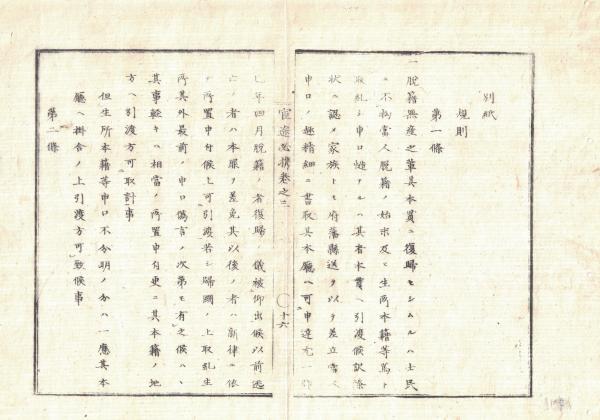 別紙
規則
第一條
一脱籍無産之輩其本貫ニ復帰セシムルハ士民
ニ不拘當人脱籍ノ始末及ヒ生所本籍等篤ト
取糺シ申口
ルハ其者本貫ヘ引渡候訳添
状ヘ認メ家族トモ府藩縣送リヲ以テ差立
申口ノ趣精細ニ書取其本廳ヘ可申達尤一昨
官途必携巻之二
十六
年四月脱籍ノ者復帰ノ儀被仰出候以前迯
亡ノ者ハ本罪ヲ差免其以後ノ者ハ新律ニ依
リ所置申付候上可引渡若シ歸
ノ上取糺生
所其外最前ノ申口偽言ノ次第モ有之候ハヽ
其事軽キハ相當ノ所置申付更ニ其本籍ノ地
方ヘ引渡方可取計事
但生所本籍等申口不分明ノ分ハ一應其本
廳ヘ掛合ノ上引渡方可致候事
第二條